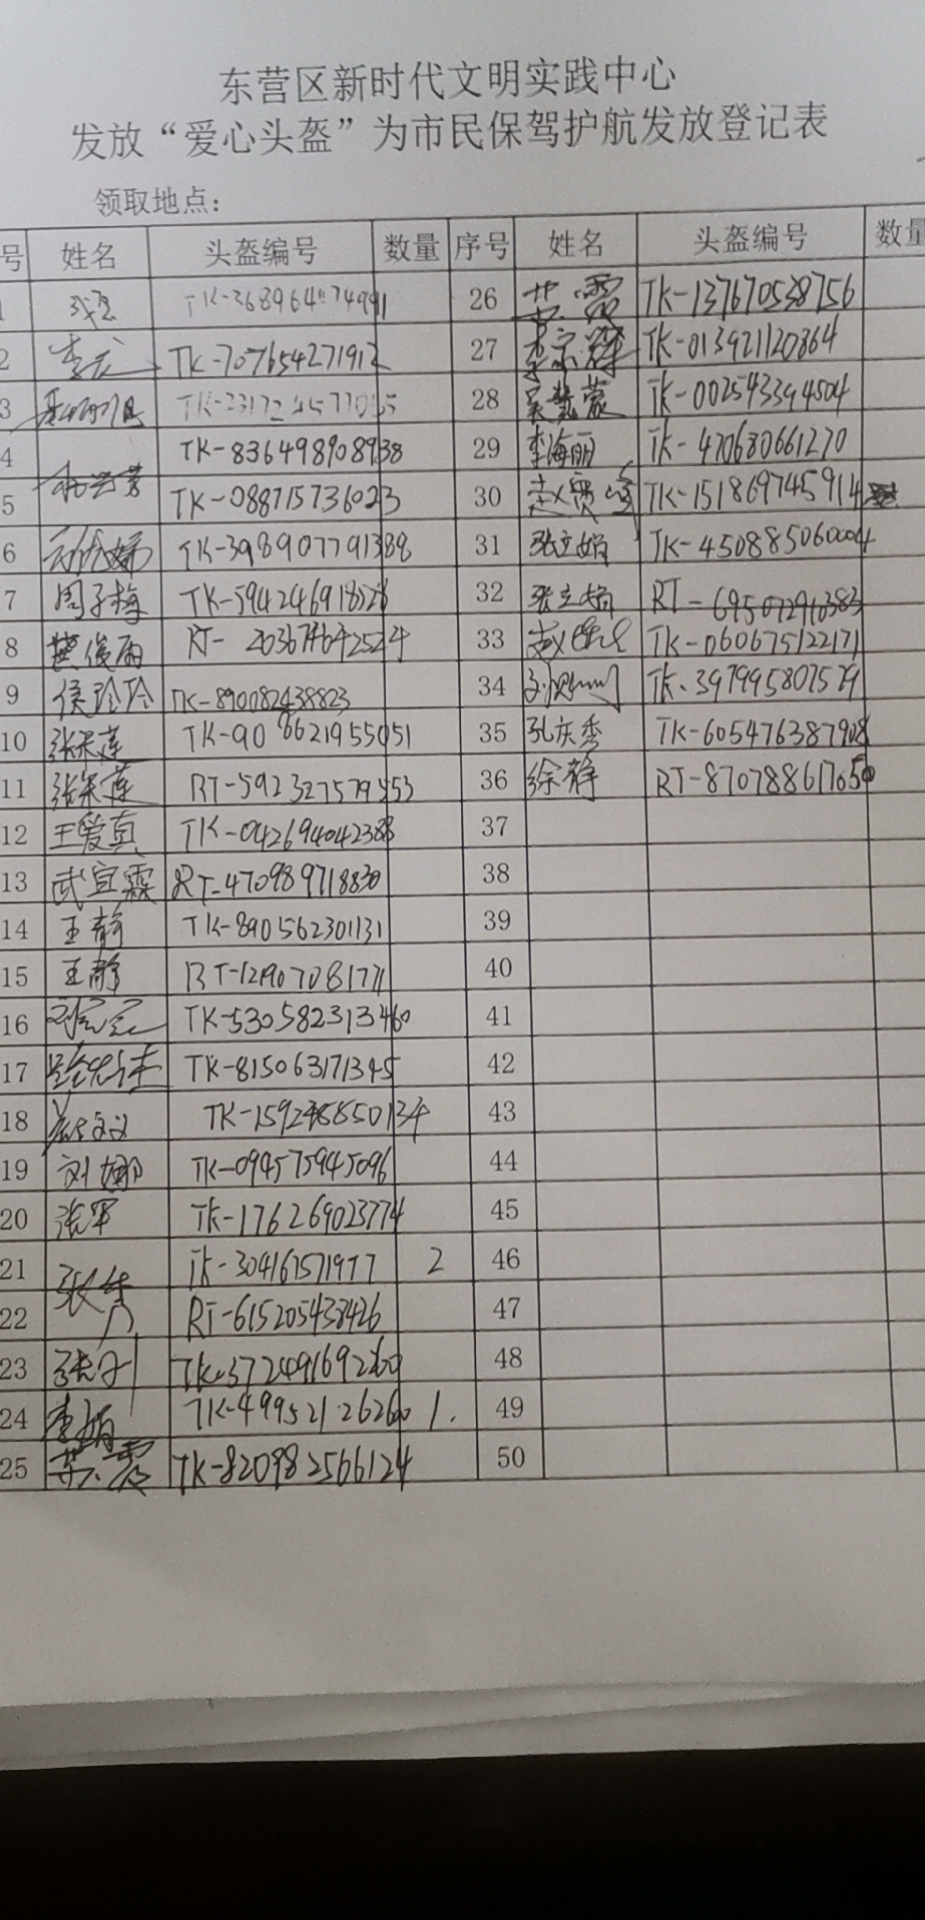 东营区新时代文明实践中心
发放“爱心头盔”为市民保驾护航发放登记表
领取地点：
号 姓名 头盔编号 数量 序号 姓名 头盔编号 数量
1 26 TK-137670538756
2 李龙 TK-707654271912 27 李宗辉 TK-013921120864
3 28 吴慧蒙 TK-002543394504
4 TK-836498908938 29 李海丽 TK-470680661270
5 TK-088715736023 30 TK-151869745914
6 TK-398907791388 31 张立娟 TK-450885060004
7 周子梅 TK-594246918528 32 张立娟 RT-695072910383
8 樊俊雨 RT- 33 TK-060675122171
9 侯玲玲 TK-890082438823 34 TK-397995807579
10 张荣莲 TK-908621955051 35 孔庆秀 TK-605476387908
11 张荣莲 RT-592327579553 36 徐静 RT-870788617650
12 王爱真 TK-042694042388 37
13 武宜霖 RT-470989718830 38
14 王静 TK-890562301131 39
15 王静 RT-121907081771 40
16 TK-530582313460 41
17 TK-815063171345 42
18 43
19 刘娜 TK-094575945096 44
20 张军 TK-176269023774 45
21 TK-304161571977 2 46
22 RT-615205438426 47
23 TK-372491692260 48
24 李娟 TK-499521262600 1. 49
25 TK-820982566124 50